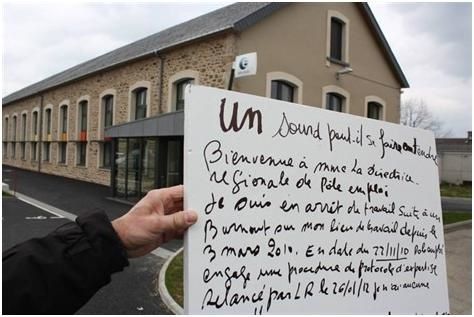 Un sourd peut-il se faire entendre
Bienvenue à mme La Directrice
régionale de Pôle emploi
Je suis en arrêt de travail suite à un
Burnout sur mon lieu de travail depuis le
3 mars 2010. En date du 22/11/10 Pole emploi
engage une procedure de protocole d'expertise
Relancé par LR le 26/01/12 je n'ai aucune